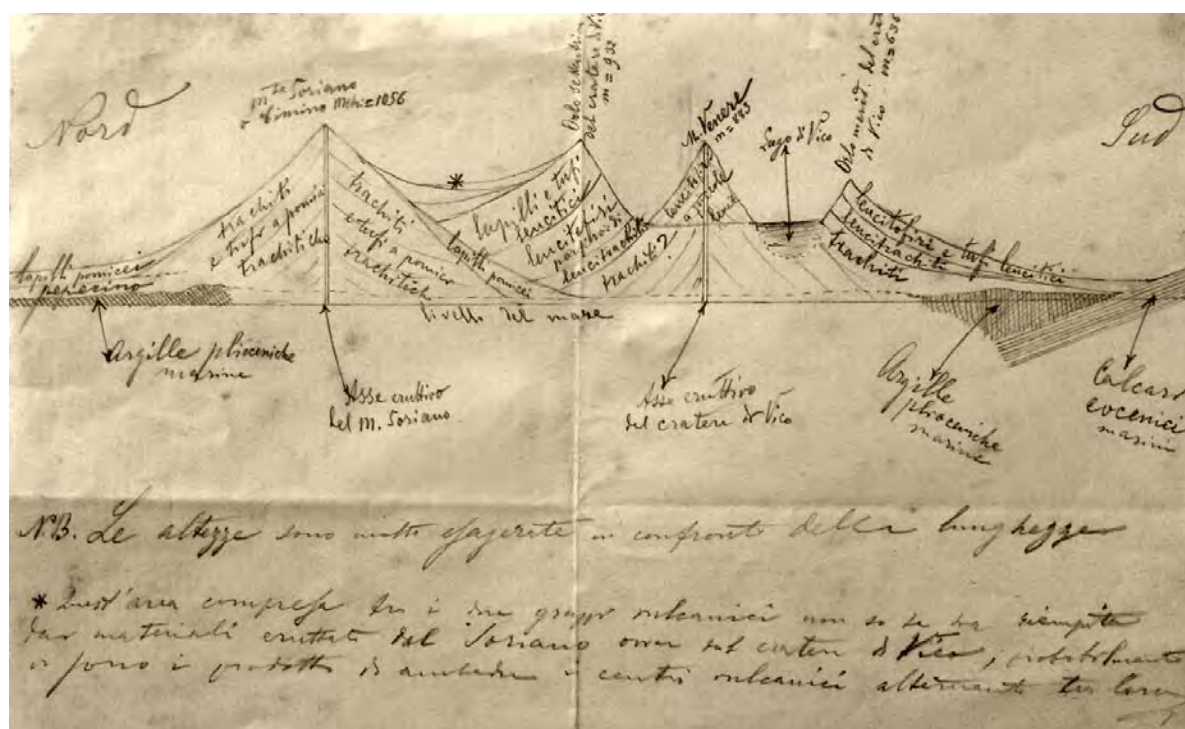 Nord
Sud
mte Soriano
o Cimino Metri=1056
Orlo settentr.
del cratere di Vico
m = 932
M. Venere
m=883
Lago di Vico
Orlo merid. del
di Vico - m=636
trachiti
e tufo a pomici
trachitiche
trachiti
e tufi a pomice
trachitich
*
lapilli e tufi
leucitici
leucitofiri
leucitrachiti
trachiti?
lapilli pomicei
lapilli pomicei
peperino
leucitofiri e tufi leucitici
leucitrachiti
trachiti
livello del mare
Argille plioceniche
marine
Asse eruttivo
del M. Soriano
Asse eruttivo
del cratere di Vico
Argille
plioceniche
marine
Calcari
eocenici
marini
N.B. Le altezze sono molto esagerate in confronto della lunghezze
* Quest'area compresa tra i due gruppi vulcanici non so se sia riempita
dai materiali eruttati dal Soriano ovver dal cratere di Vico; probabilmente
vi sono i prodotti di ambedue i centri vulcanici alternanti tra loro